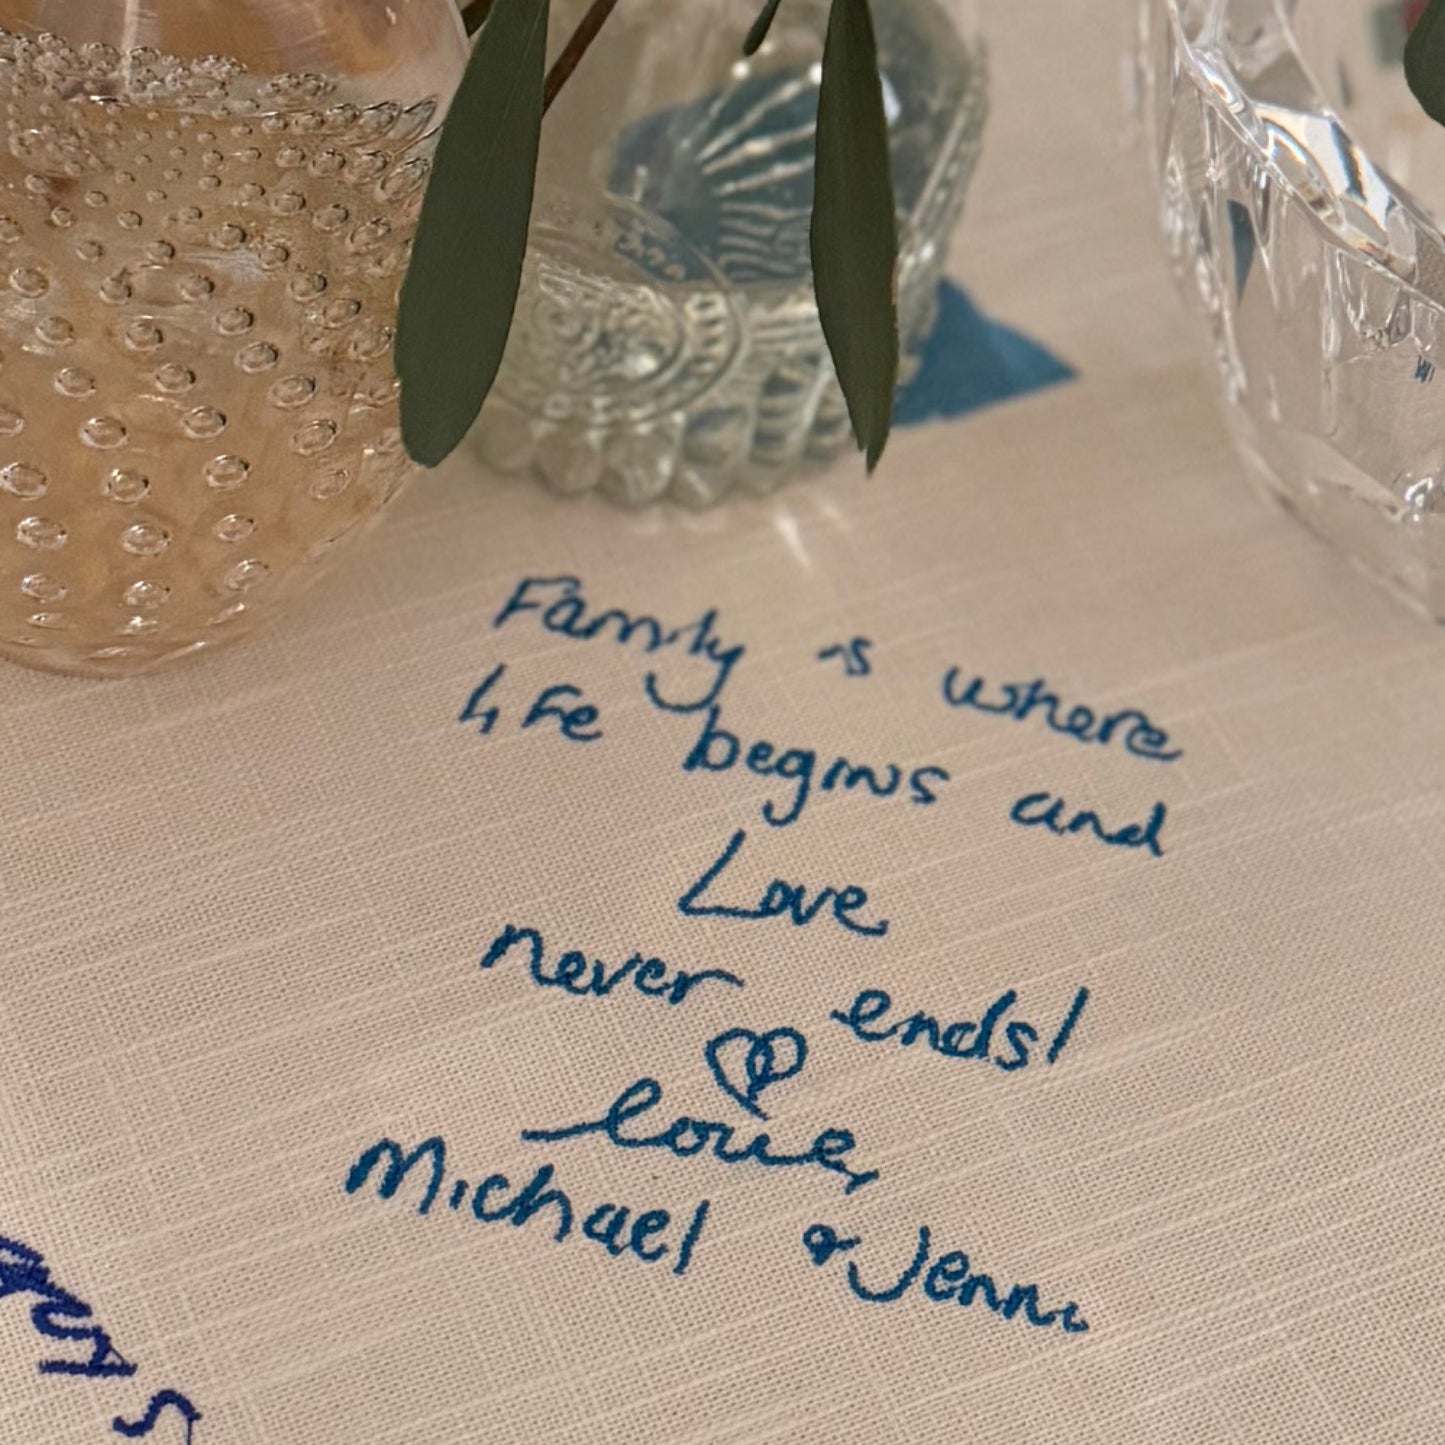 Family is where
life begins and
Love
never ends!
love,
Michael & Jenni